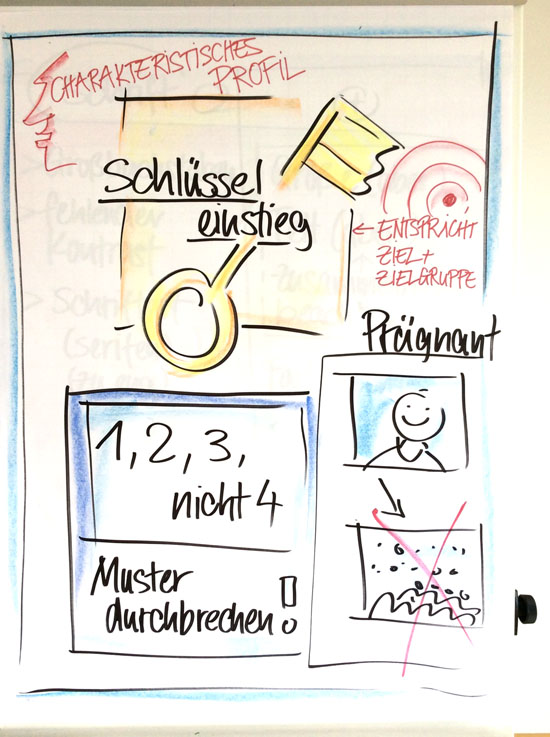 CHARAKTERISTISCHES
PROFIL
Schlüssel
einstieg
← ENTSPRICHT
ZIEL +
ZIELGRUPPE
Prägnant
1, 2, 3,
nicht 4
Muster
durchbrechen!